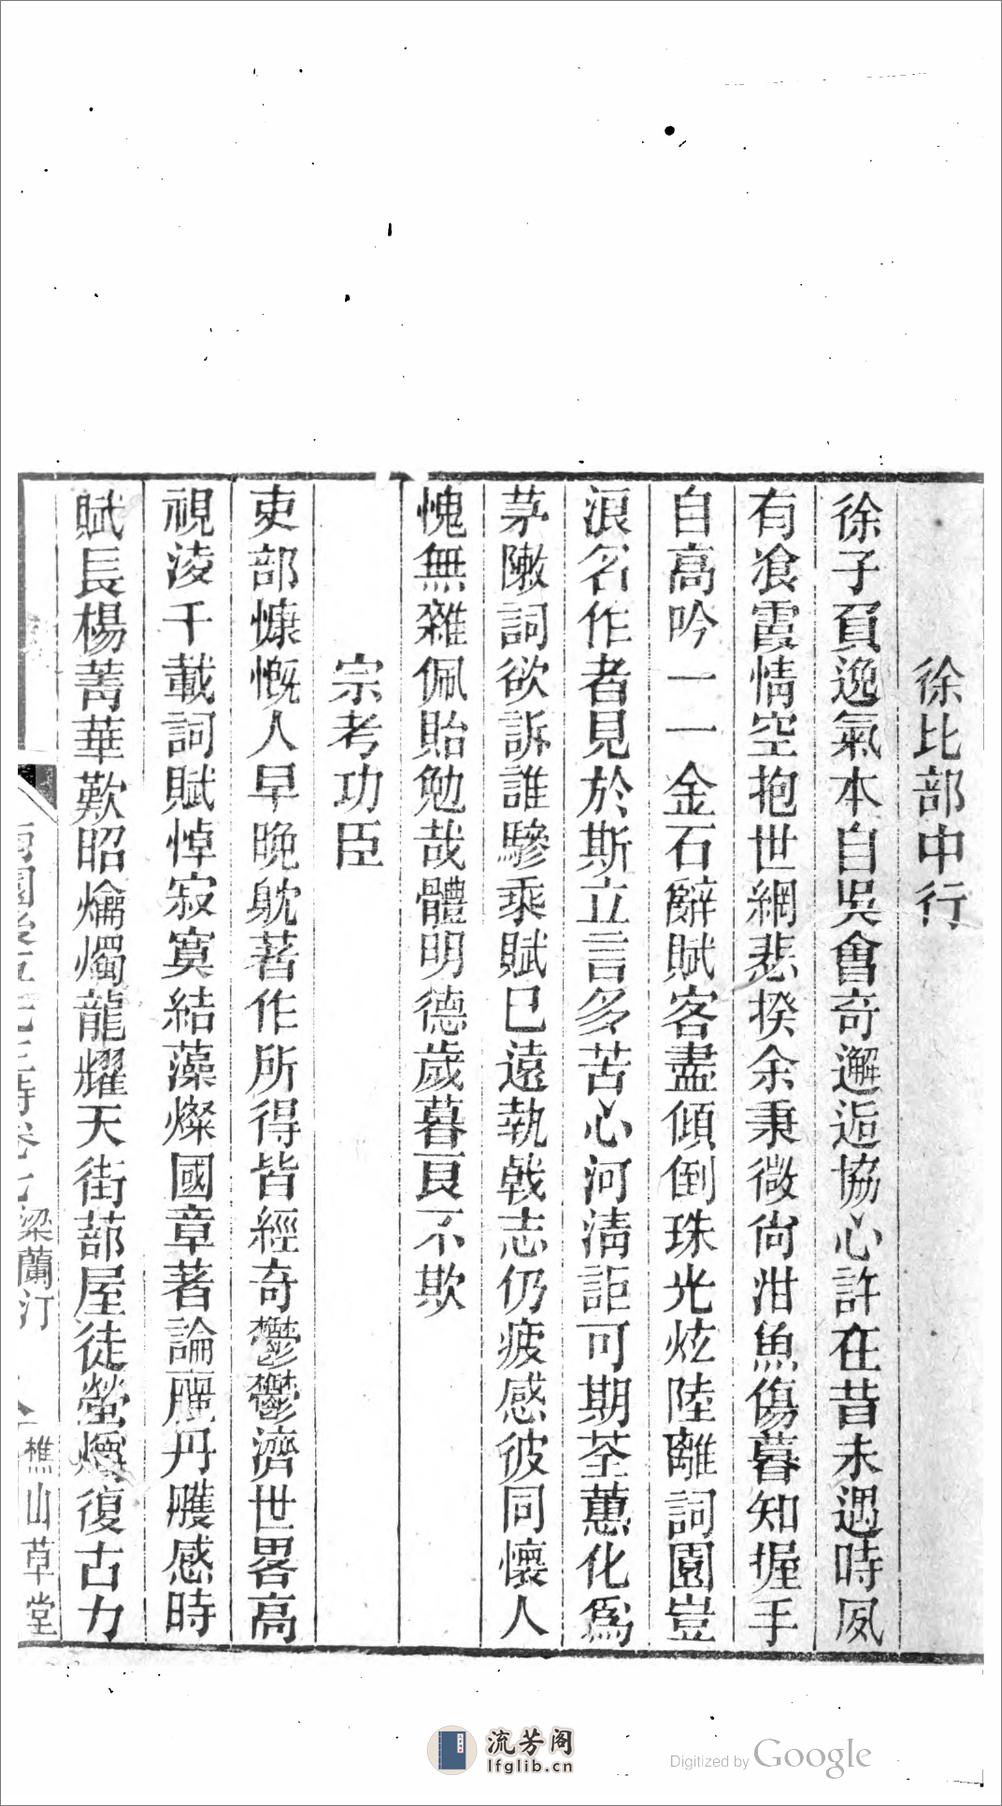 徐比部中行
徐子負逸氣本自吳會奇邂逅協心許在昔未遇時夙
有飡霞情空抱世網悲揆余秉微尙泔魚傷暮知握手
自高吟一一金石辭賦客盡傾倒珠光炫陸離詞園豈
浪名作者見於斯立言多苦心河淸詎可期荃蕙化爲
茅陳詞欲訴誰驂乘賦已遠執戟志仍疲感彼同懷人
愧無雜佩貽勉哉體明德歲暮良不欺
宗考功臣
吏部慷慨人早晚躭著作所得皆經奇鬱鬱濟世畧高
視淩千載詞賦悼寂寞結藻燦國章著論丹雘感時
賦長楊菁華歎昭爚燭龍耀天街蔀屋徒螢復古力
南園後五先生詩卷 梁蘭汀 樵山草堂
流芳阁
lfglib.cn
Digitized by Google